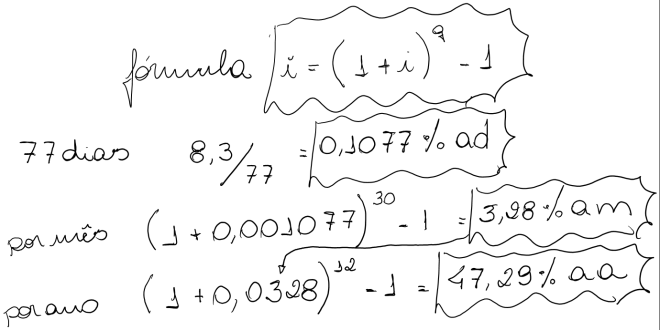 fórmula i = (1 + i)^q - 1
77 dias 8,3/77 = 0,1077 % ad
por mês (1 + 0,001077)^30 - 1 = 3,28 % am
por ano (1 + 0,0328)^12 - 1 = 47,29 % aa